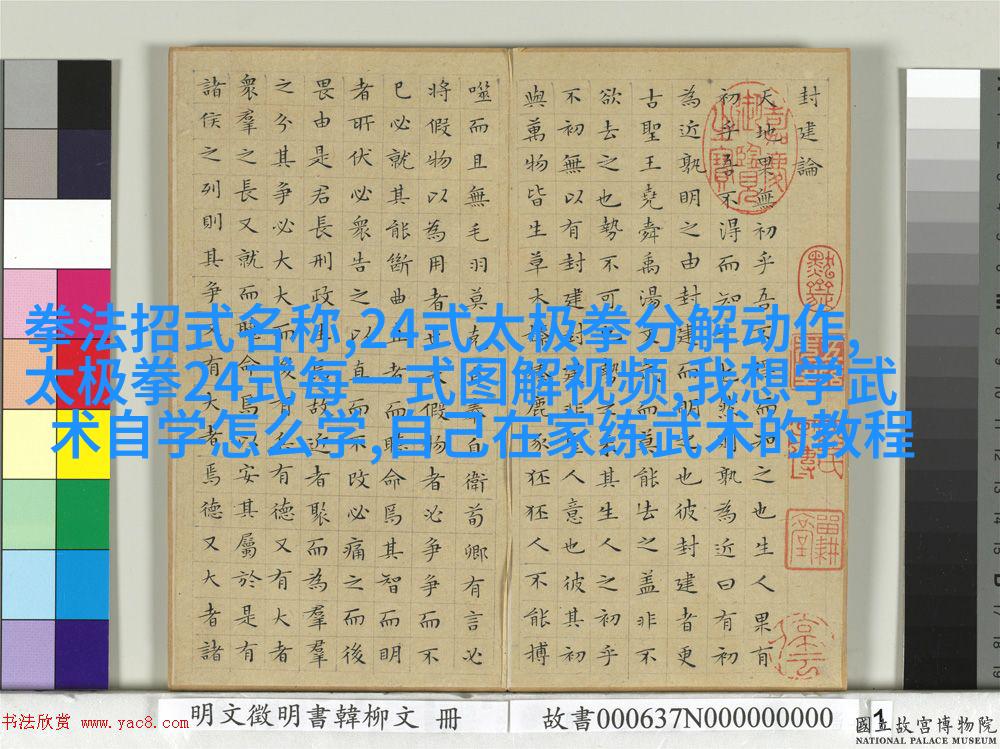 封建論
天地果無初乎吾不得而知之也生人果有
初乎吾不得而知之也然則孰為近曰有初
為近孰明之由封建而明之也彼封建者更
古聖王堯舜禹湯文武而莫能去之蓋非不
欲去之也勢不可也勢之來其生人之初乎
不初無以有封建封建非聖人意也彼其初
與萬物皆生草木榛榛鹿豕狉狉人不能搏
噬而且無毛羽莫克自奉自衛荀卿有言必
將假物以為用者也夫假物者必爭爭而不
已必就其能斷曲直者而聽命焉其智而明
者所伏必衆告之以直而不改必痛之而後
畏由是君長刑政生焉故近者聚而為羣
之分其爭必大大而後有兵有德又有大者
衆羣之長又就而聽命焉以安其屬於是有
諸侯之列則其爭又有大者焉德又大者諸
拳法招式名称,24式太极拳分解动作,
太极拳24式每一式图解视频,我想学武
术自学怎么学,自己在家练武术的教程
书法欣赏 www.yac8.com
明文徵明書韓柳文 冊
故書000637N000000000
1
國立故宮博物院
NATIONAL PALACE MUSEUM